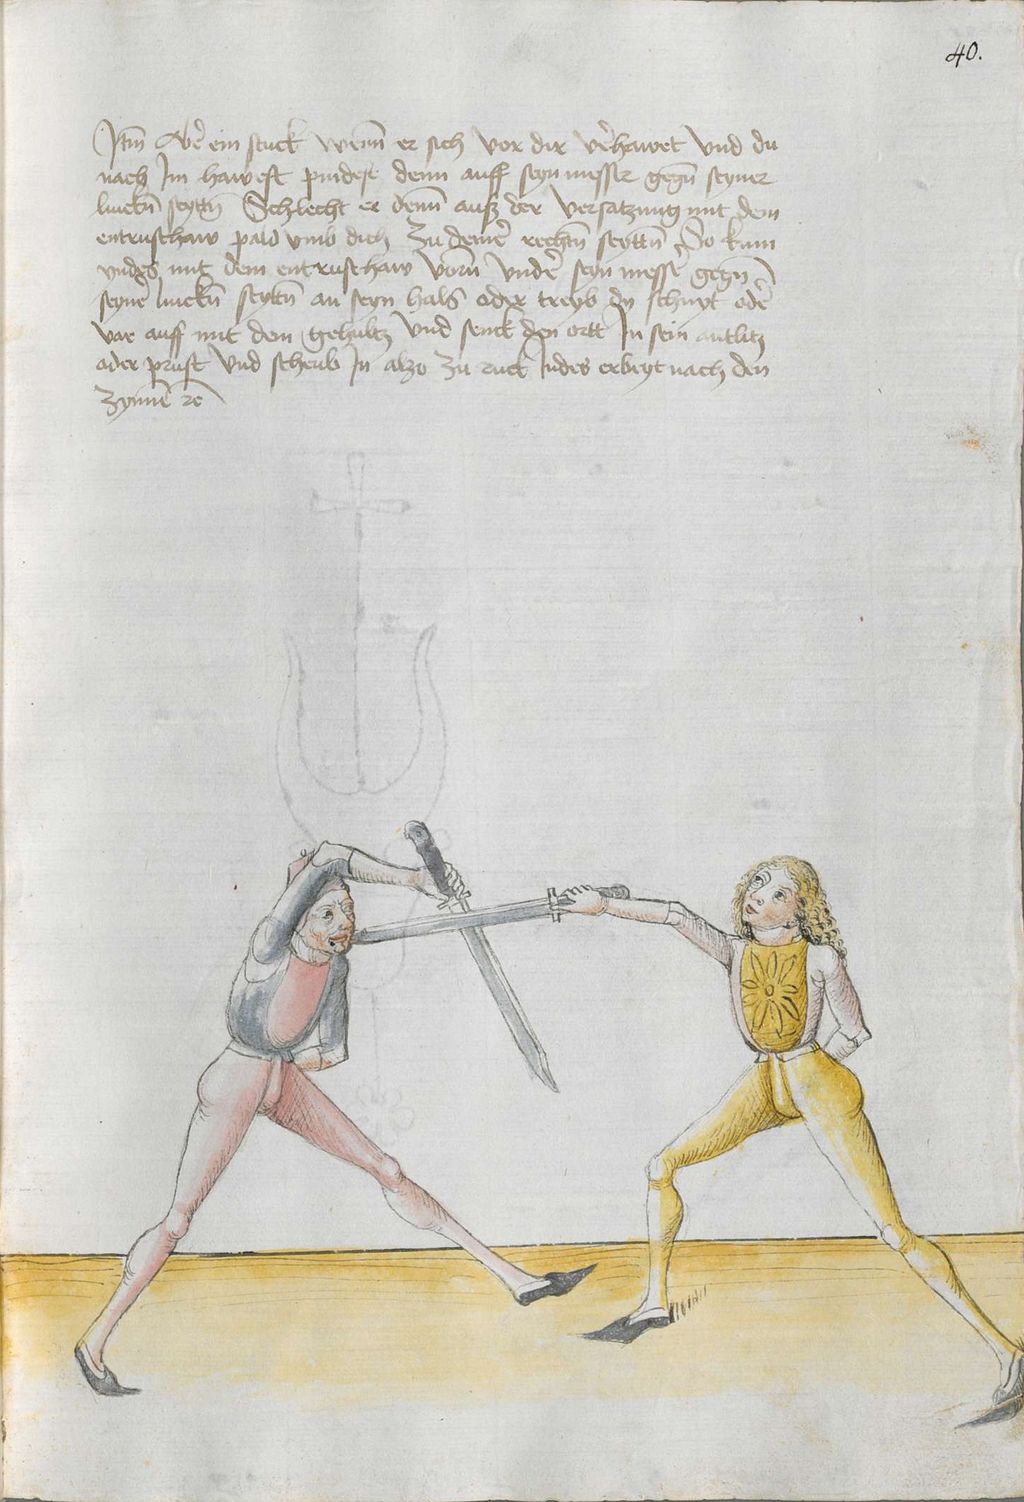 40.
Itm̄ Abē ein stuck wenn er sich vor dir v̄hawet vnd du
nach Im hawest pindest denn auff seyn messer gegn̄ seyner
linckn̄ seyttn̄ Schlecht er denn auß der versatzung mit dem
entrusthaw pald vmb dich zu deinē rechtn̄ seyttn̄ So kum
Indes mit dem entrusthaw vorn̄ vndē seyn messē gegn̄
seynē linckn̄ seyttn̄ an seyn hals oder treyb dy schnyt odē
var auff mit dem gehultz vnd senck den ortt In sein antlitz
oder prust vnd scheub In alzo zu ruck Indes erbeyt nach den
zynnē rc̄